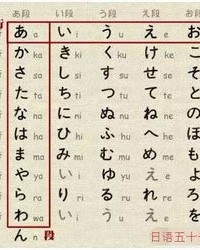 あ段 い段 う段 え段
あ a い i う u え e お
か ka き ki く ku け ke こ
さ sa し si す su せ se そ
た ta ち ti つ tu て te と
な na に ni ぬ nu ね ne の
は ha ひ hi ふ hu へ he ほ
ま ma み mi む mu め me も
や ya い i ゆ yu え e よ
ら ra り ri る ru れ re ろ
わ wa い i う u え e を
ん n 段
日语五十